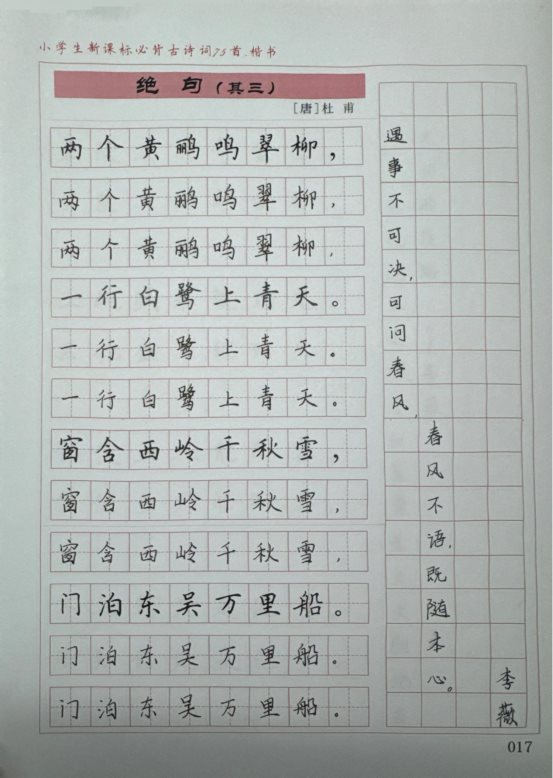 小学生新课标必背古诗词75首.楷书
绝 句(其三)
[唐]杜 甫
两个黄鹂鸣翠柳,
两个黄鹂鸣翠柳,
两个黄鹂鸣翠柳,
一行白鹭上青天。
一行白鹭上青天。
一行白鹭上青天。
窗含西岭千秋雪,
窗含西岭千秋雪,
窗含西岭千秋雪,
门泊东吴万里船。
门泊东吴万里船。
门泊东吴万里船。
遇事不可决,可问春风,
春风不语,既随本心。
李薇
017